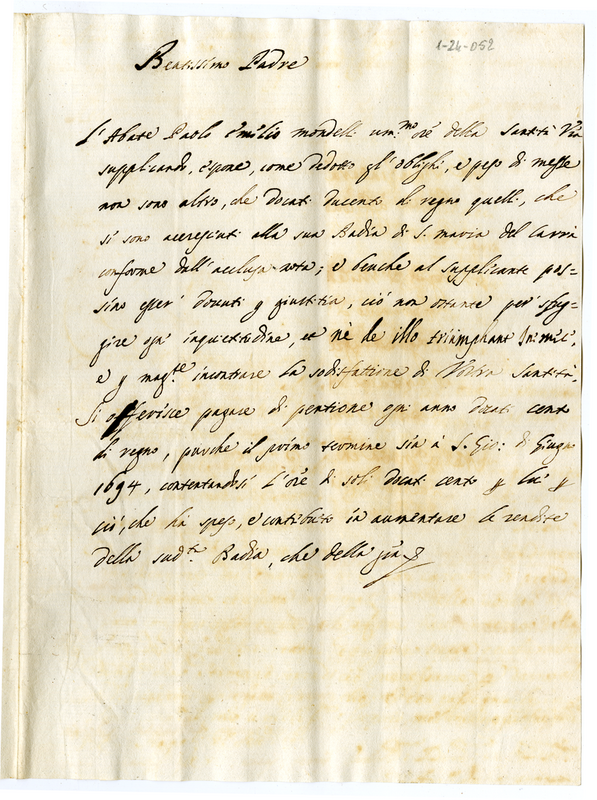 1-24-052
Beatissimo Padre
L'Abate Paolo Emilio Mondelli um.mo ore della Santità Vra
supplicando, espone, come dedotto gl'oblighi, e peso di messe
non sono altro, che docati ducento di regno quelli, che
si sono accresciuti alla sua Badia di S. Maria del
conforme dall'acclusa nota; e benche al supplicante pos=
sino esser dovuti p giustitia, ciò non ostante per sfug=
gire ogn'inquietitudine, et nè de illo triumphant Inimici,
e p magte incontrare la sodisfatione di Vostra Santità,
Si offerisce pagare di pentione ogn'anno docati cento
di regno, purche il primo termine sia à S. Gio: di Giugno
1694, contentandosi l'ore di soli docati cento p lui p
ciò, che hà speso, e contribuito in aumentare le rendite
della sudta Badia, che della